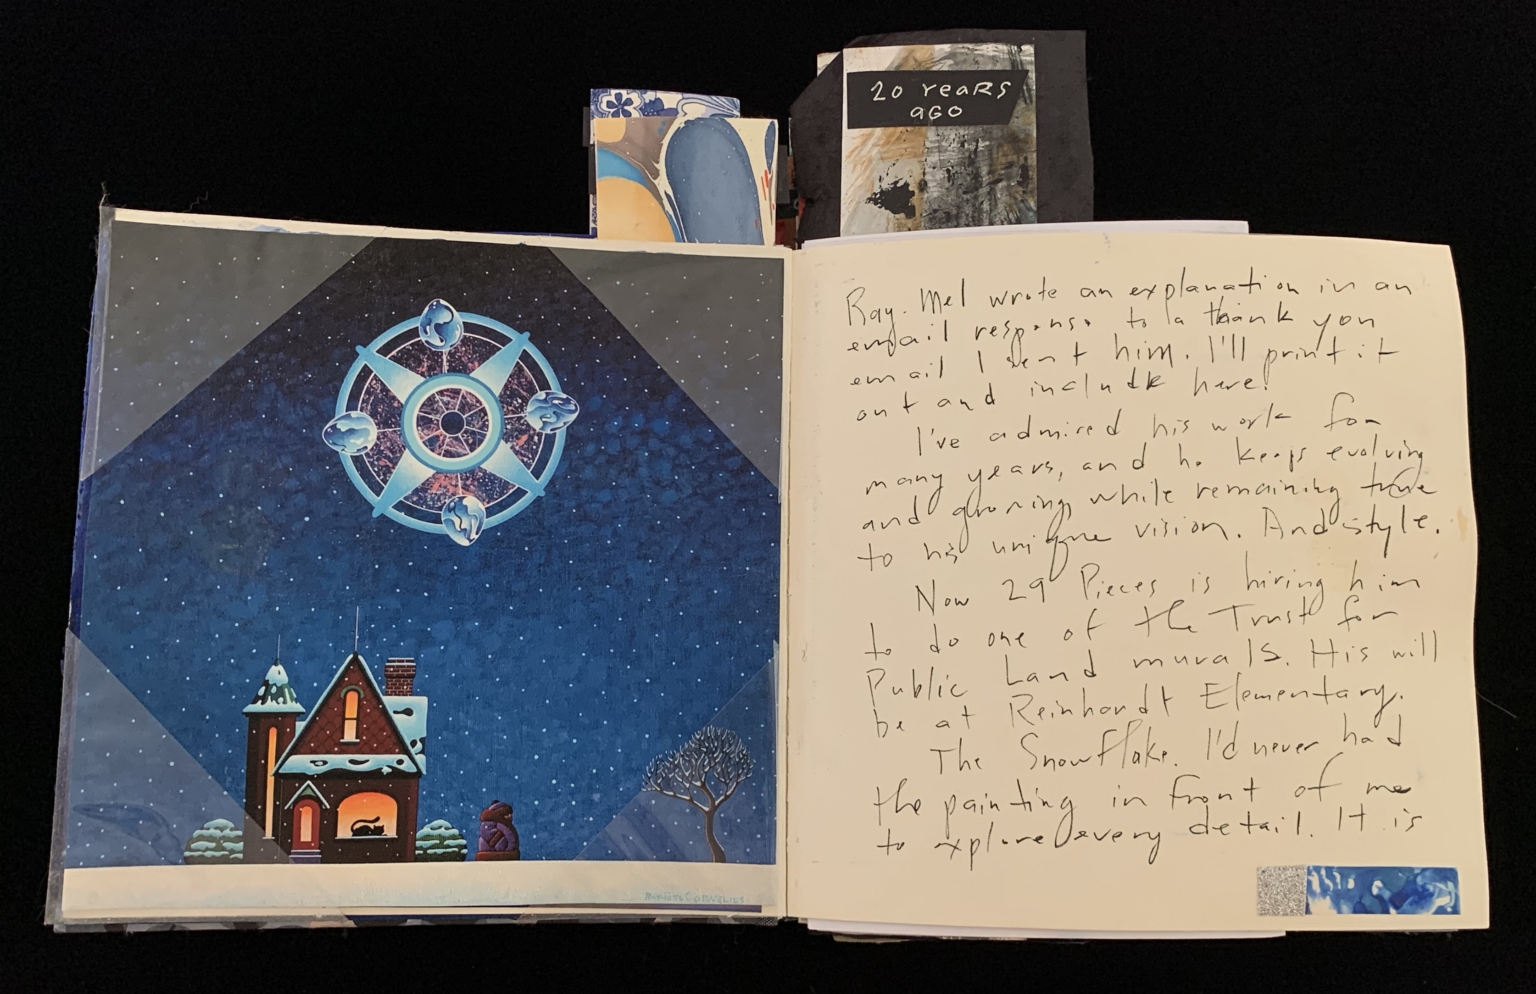 20 YEARS
AGO
Ray. Mel wrote an explanation in an
email response to a thank you
email I sent him. I'll print it
out and include here!
I've admired his work for
many years, and he keeps evolving
and growing while remaining true
to his unique vision. And style.
Now 29 Pieces is hiring him
to do one of the Trust for
Public Land murals. His will
be at Reinhardt Elementary.
The Snowflake. I'd never had
the painting in front of me
to explore every detail. It is
CORNELIUS